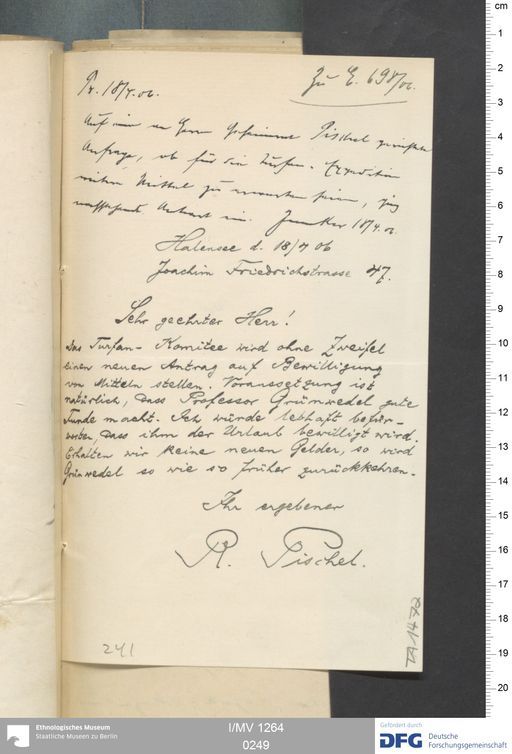 Pr. 18/4.06.
Zu E. 698/06.
Auf eine an Herrn Geheimrat Pischel gerichtete
Anfrage, ob für die Turfan-Expedition
weitere Mittel zu erwarten seien, ging
Antwort ein. 18/4.06.
Halensee d. 18/4 06
Joachim Friedrichstrasse 47.
Sehr geehrter Herr!
Das Turfan-Komitee wird ohne Zweifel
einen neuen Antrag auf Bewilligung
von Mitteln stellen. Voraussetzung ist
natürlich, dass Professor Grünwedel gute
Funde macht. Ich würde lebhaft befür-
worten, dass ihm der Urlaub bewilligt wird.
Erhalten wir keine neuen Gelder, so wird
Grünwedel so wie so früher zurückkehren.
Ihr ergebener
R. Pischel.
241
TA 1472
cm
1
2
3
4
5
6
7
8
9
10
11
12
13
14
15
16
17
18
19
20
Ethnologisches Museum
Staatliche Museen zu Berlin
I/MV 1264
0249
Gefördert durch
DFG Deutsche
Forschungsgemeinschaft